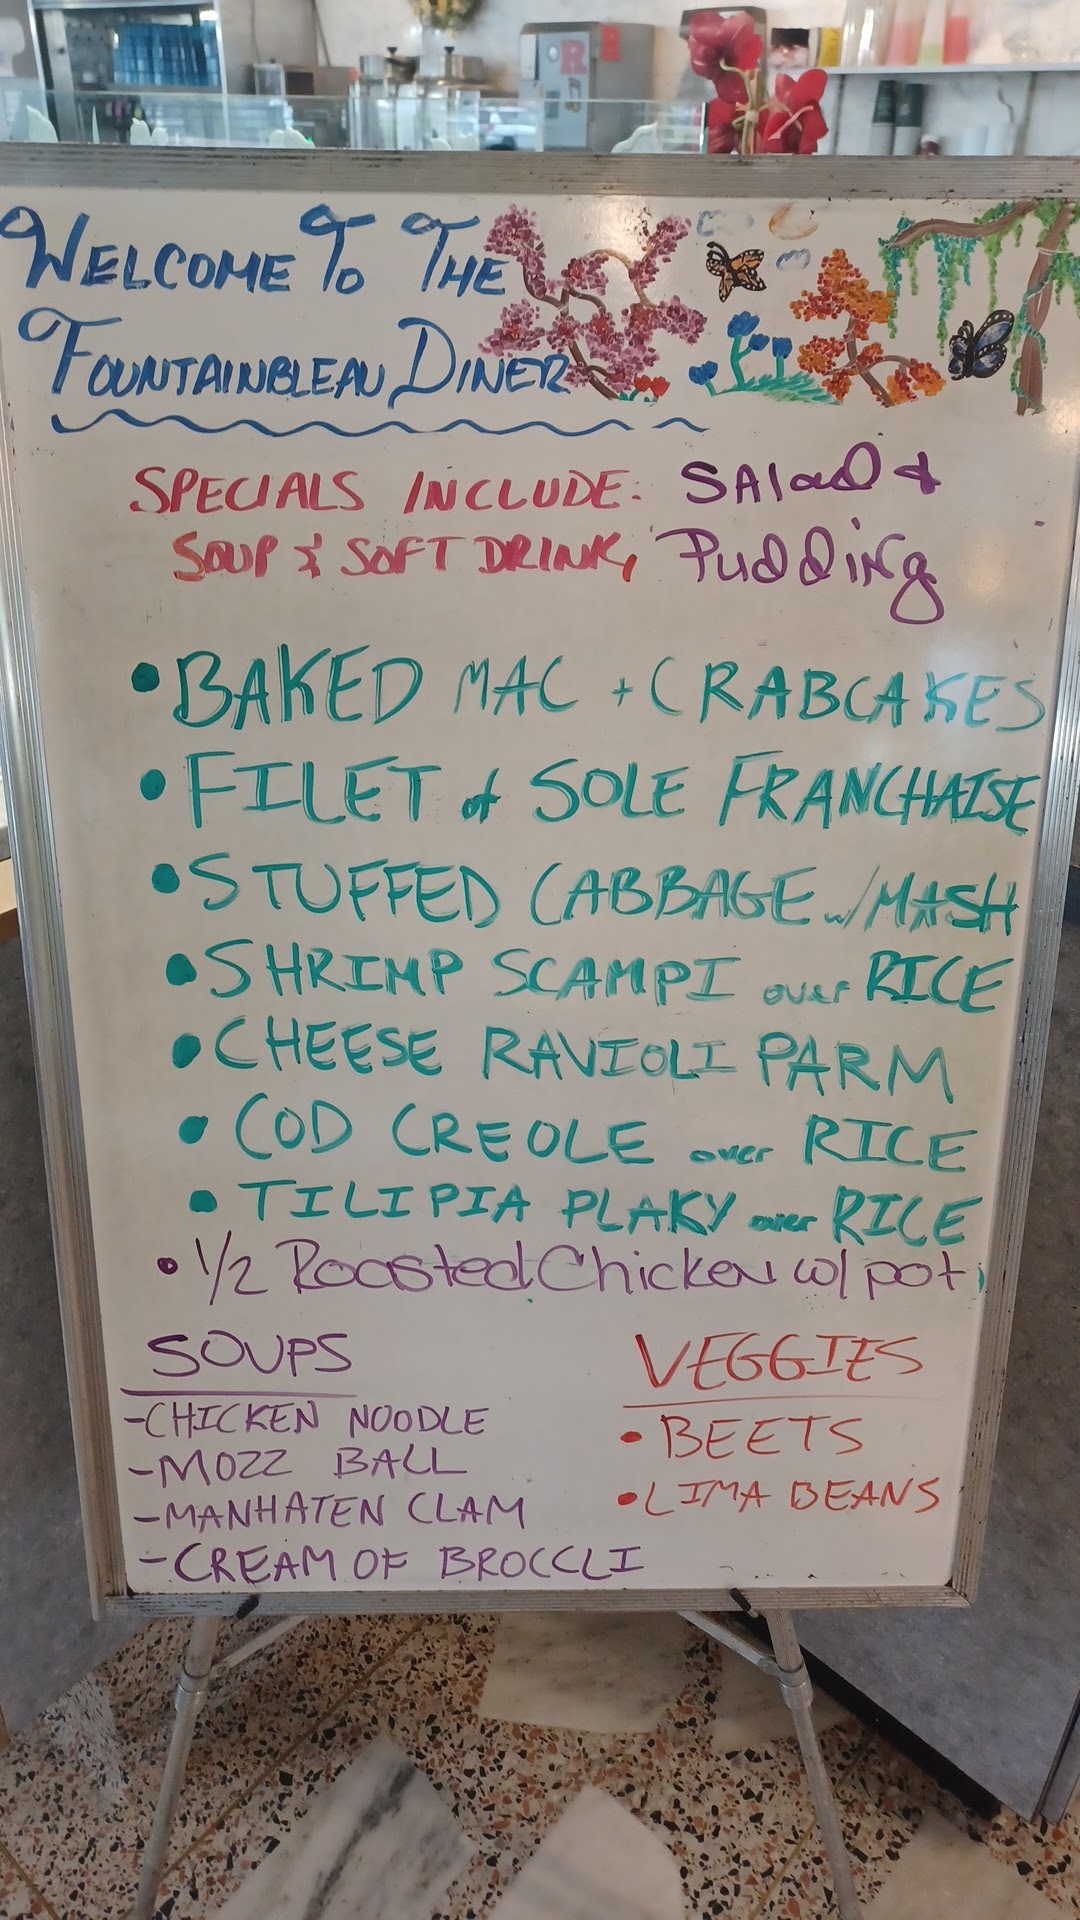 WELCOME TO THE
FOUNTAINBLEAU DINER
SPECIALS INCLUDE: SALAD &
SOUP & SOFT DRINK, PUDDING
• BAKED MAC + CRABCAKES
• FILET of SOLE FRANCHAISE
• STUFFED CABBAGE w/MASH
• SHRIMP SCAMPI over RICE
• CHEESE RAVIOLI PARM
• COD CREOLE over RICE
• TILIPIA PLAKY over RICE
• 1/2 Roasted Chicken w/ pot
SOUPS
-CHICKEN NOODLE
-MOZZ BALL
-MANHATEN CLAM
-CREAM OF BROCCLI
VEGGIES
• BEETS
• LIMA BEANS
R
R